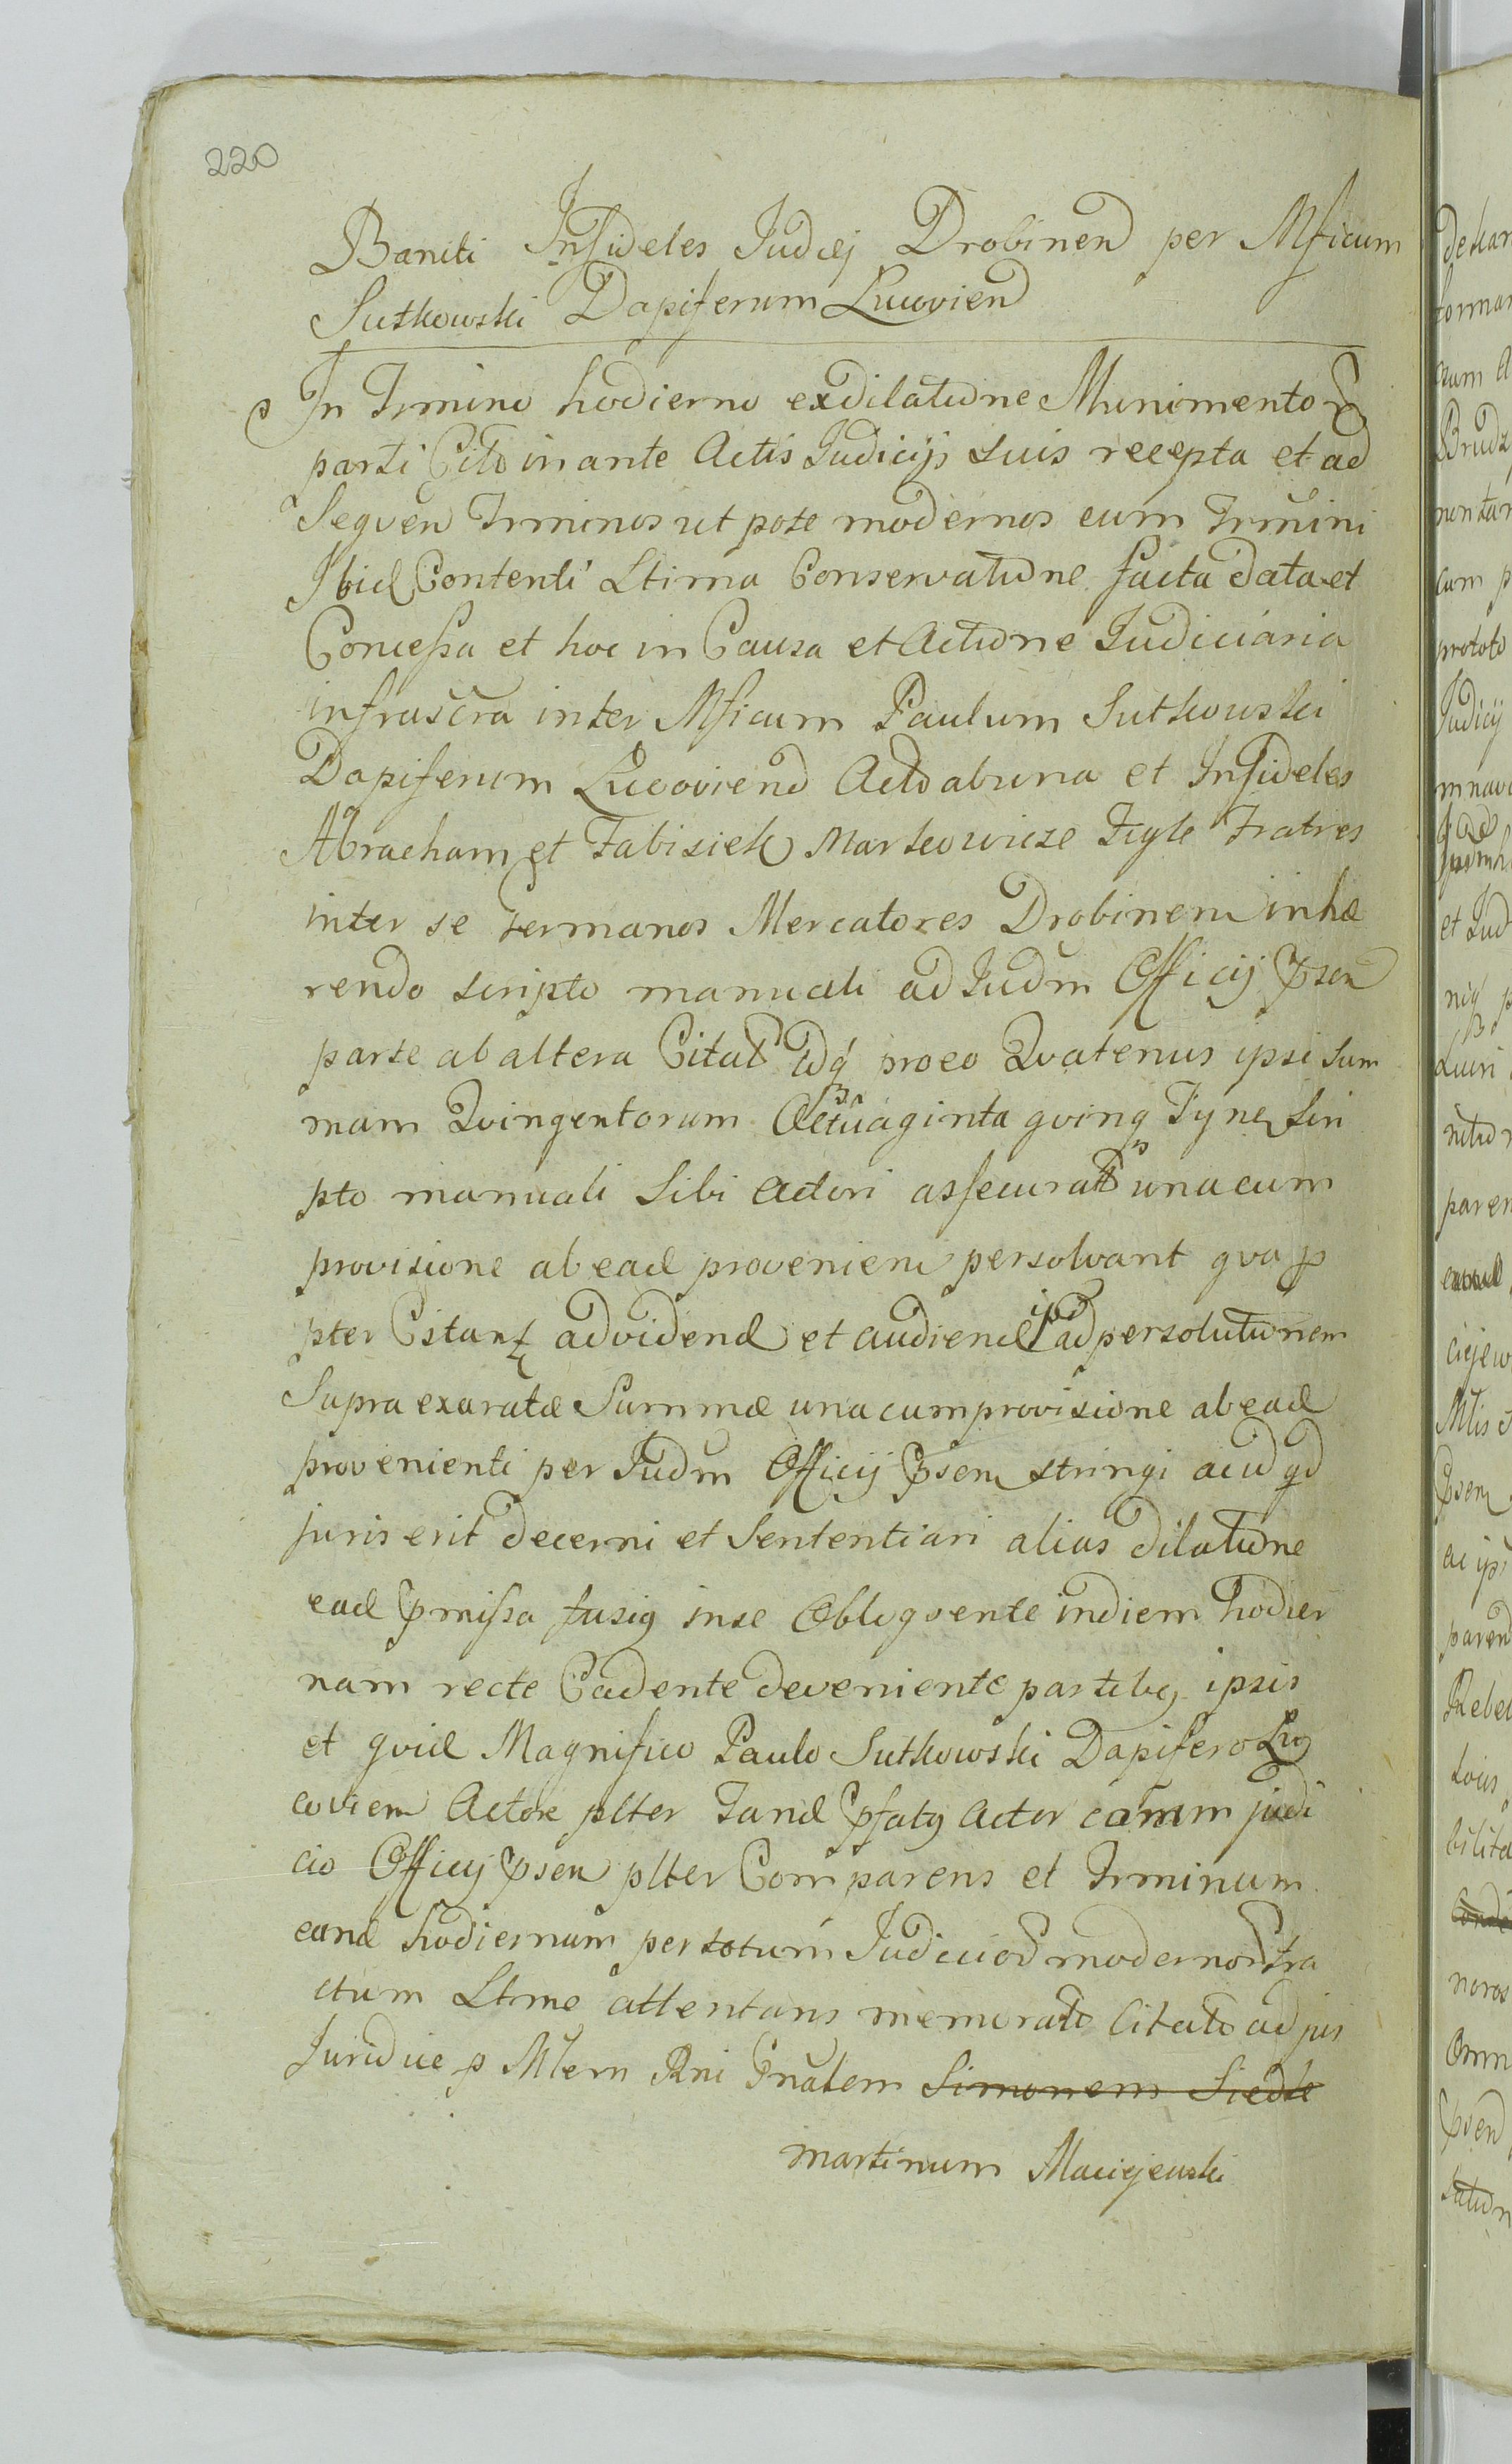 220
Baniti Infideles Judæi Drobinen per Mficum
Sutkowski Dapiferum Lucovien
In Trmino hodierno exdilatione Munimentor
parti Citto in ante Actis Judicijs suis recepta et ad
Seqven Trminos ut pote modernos cum Trmini
Ibid Contenti Ltima Conservatione facta data et
Concessa et hoc in Causa et Actione Judiciaria
infrascra inter Mficum Paulum Sutkowski
Dapiferum Lucovien Acto ab una et Infideles
Abracham et Fabisiek Markowicze Fiyle Fratres
inter se Germanos Mercatores Drobinen inhæ
rendo scripto manuali ad Judm Officij Psen
parte ab altera Citat Idq pro eo Qvatenus ipsi sum
mam Qvingentorum Octuaginta qvinq Tyn Scri
pto manuali Sibi Actori assecurat una cum
provisione ab ead provenien persolvant qva p
pter Citant ad vidend et audiend ipos ad persolutionem
Supra exaratæ Summæ una cum provisione ab ead
provenienti per Judm Officij Psen stringi acid qd
juris erit decerni et Sententiari alias dilatione
ead pmissa fusiq inse Obloqvente in diem hodier
nam recte Cadente deveniente partibq ipsis
et qvid Magnifico Paulo Sutkowski Dapifero Lu
covien Actore plter Tand pfatq Actor coram judi
cio Officij Psen plter Comparens et Trminum
eund hodiernum per totum Judicior modernor tra
ctum Ltme attentans memorato Citato ad jus
Juridice p Mtem Rni Gnalem Simonem Siedle
Martinum Maciejewski
detkar
forman
Brudz
cum p
prototo
Judicij
et Jud
paren
ciejew
Mlis
Psen
Rebel
bilita
noros
Omn